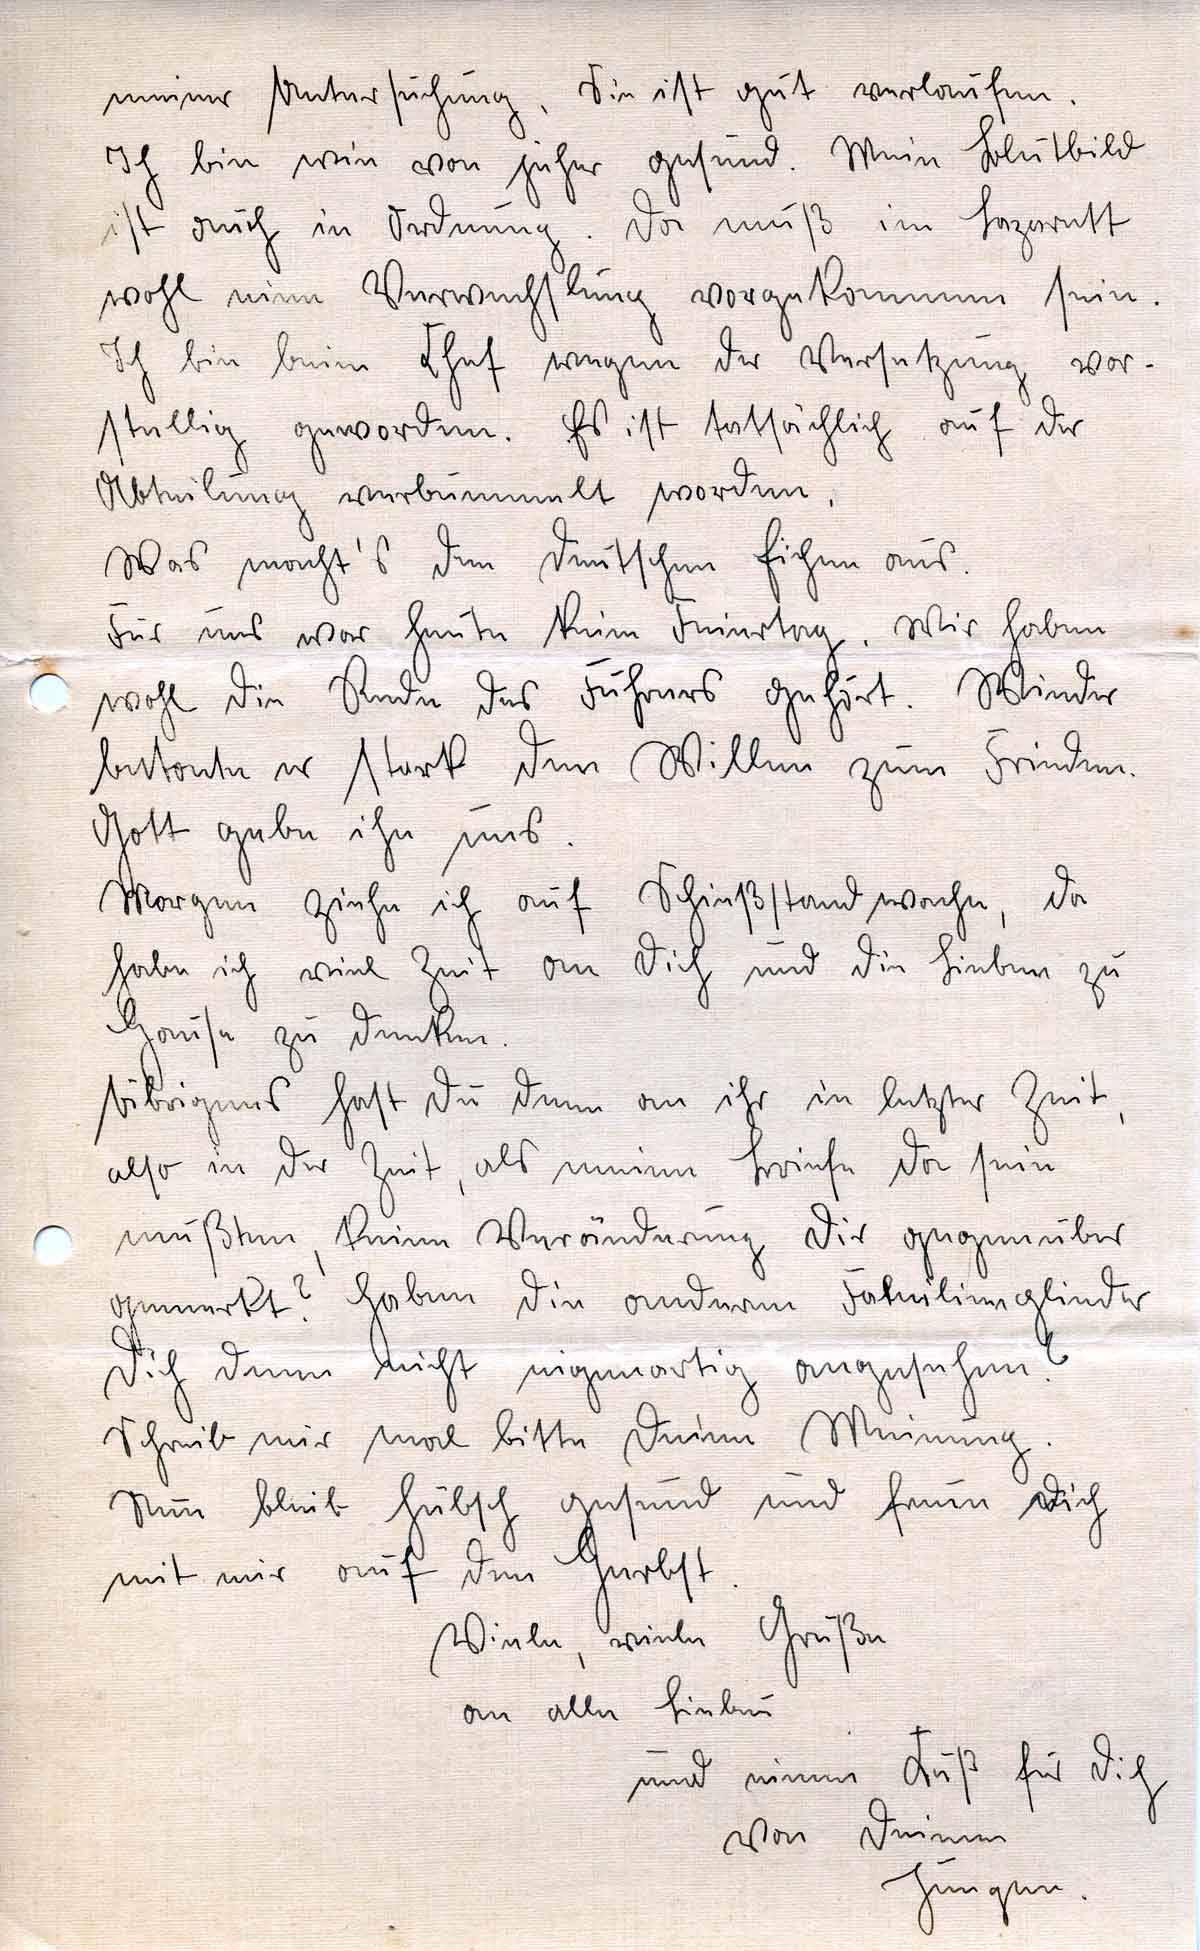 meiner Untersuchung. Sie ist gut verlaufen.
Ich bin wie von jeher gesund. Mein Blutbild
ist auch in Ordnung. Da muß im Lazarett
wohl eine Verwechslung vorgekommen sein.
Ich bin beim Chef wegen der Versetzung vor-
stellig geworden. Es ist tatsächlich auf der
Abteilung verbummelt worden.
Was macht's den deutschen Eichen aus.
Für uns war heute kein Feiertag. Wir haben
wohl die Rede des Führers gehört. Wieder
betonte er stark den Willen zum Frieden.
Gott gebe ihn uns.
Morgen ziehe ich auf Schießstandwache, da
habe ich viel Zeit an Dich und die Lieben zu
Hause zu denken.
Übrigens hast Du denn an ihr in letzter Zeit,
also in der Zeit, als meine Briefe da sein
mußten, keine Veränderung Dir gegenüber
gemerkt? Haben die anderen Familienglieder
Dich denn nicht eigenartig angesehen?
Schreib mir mal bitte Deine Meinung.
Nun bleib hübsch gesund und freue Dich
mit mir auf den Herbst.
Viele, viele Grüße
an alle Lieben
und einen Kuß für Dich
von Deinem
Jungen.